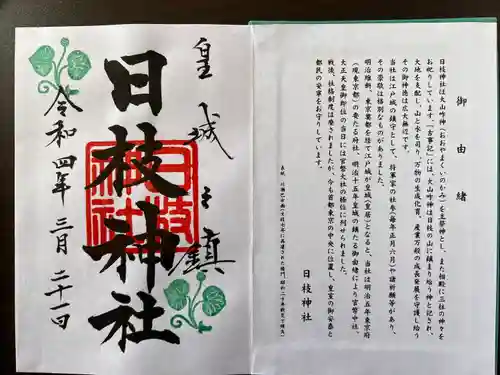 皇城之鎮
日枝神社
日枝神社
令和四年三月二十一日
御由緒
日枝神社は大山咋神（おおやまくいのかみ）を主祭神とし、また相殿に三柱の神々を
お祀りしています。「古事記」には、大山咋神は日枝の山に鎮まり給う神と記され、
大地を支配し、山と水を司り、万物の生成化育、産業万般の成長発展を守護し給う
その御神徳は広大無辺です。
当社は江戸城の鎮守として、将軍家の社参（毎年正月六月）や諸祈願等があり、
その崇敬は格別なものがありました。
明治維新、東京奠都を経て江戸城が皇城（皇居）となると、当社は明治五年東京府
（現東京都）の要たる府社、明治十五年皇城の鎮たる御由緒により官幣中社、
大正天皇御即位の当日には官幣大社の極位に列せられました。
戦後、社格制度は廃されましたが、今も首都東京の中央に位置し、皇室の御安泰と
都民の安寧をお守りしています。
日枝神社